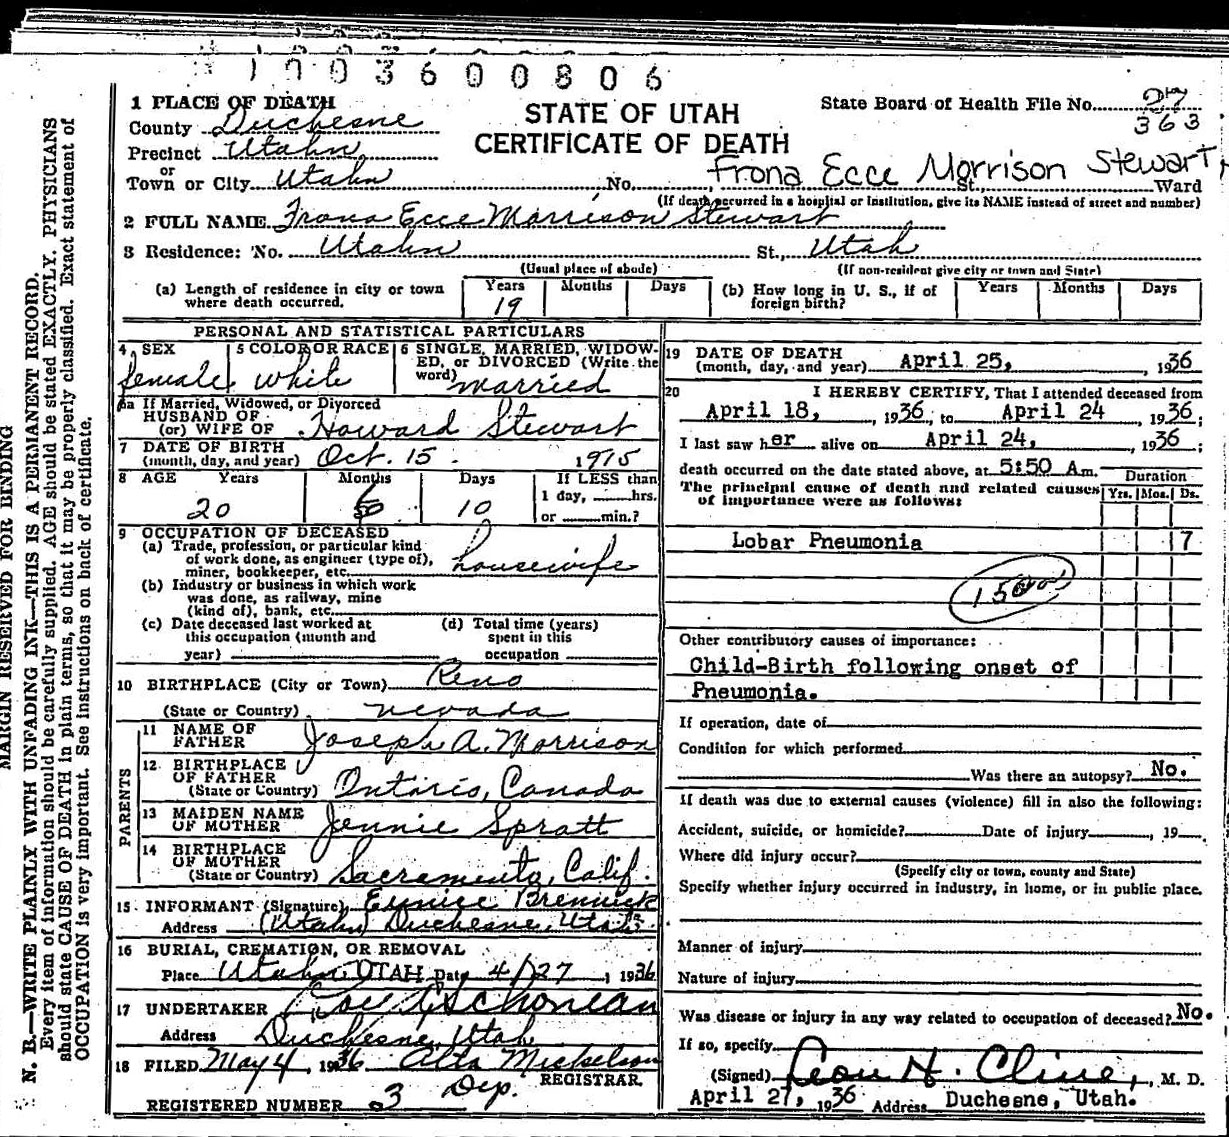 1003600806
1 PLACE OF DEATH
County Duchesne
Precinct Utahn
or
Town or City Utahn No. St., Ward
STATE OF UTAH
CERTIFICATE OF DEATH
State Board of Health File No. 27
363
Frona Ecce Morrison Stewart
(If death occurred in a hospital or institution, give its NAME instead of street and number)
2 FULL NAME Frona Ecce Morrison Stewart
3 Residence: No. Utahn St., Utah
(Usual place of abode) (If non-resident give city or town and State)
(a) Length of residence in city or town where death occurred. Years 19 Months Days
(b) How long in U. S., if of foreign birth? Years Months Days
PERSONAL AND STATISTICAL PARTICULARS
4 SEX female
5 COLOR OR RACE white
6 SINGLE, MARRIED, WIDOWED, or DIVORCED (Write the word) married
6a If Married, Widowed, or Divorced
HUSBAND OF
(or) WIFE OF Howard Stewart
7 DATE OF BIRTH
(month, day, and year) Oct. 15 1915
8 AGE Years Months Days If LESS than
1 day, hrs.
or min.?
20 6 10
9 OCCUPATION OF DECEASED
(a) Trade, profession, or particular kind
of work done, as engineer (type of),
miner, bookkeeper, etc. housewife
(b) Industry or business in which work
was done, as railway, mine
(kind of), bank, etc.
(c) Date deceased last worked at
this occupation (month and
year)
(d) Total time (years)
spent in this
occupation
10 BIRTHPLACE (City or Town) Reno
(State or Country) nevada
PARENTS
11 NAME OF
FATHER Joseph A. Morrison
12 BIRTHPLACE
OF FATHER
(State or Country) Ontario, Canada
13 MAIDEN NAME
OF MOTHER Jennie Spratt
14 BIRTHPLACE
OF MOTHER
(State or Country) Sacramento, Calif.
15 INFORMANT (Signature) Eunice Brennick
Address (Utahn) Duchesne, Utah.
16 BURIAL, CREMATION, OR REMOVAL
Place Utahn, UTAH Date 4/27, 1936
17 UNDERTAKER
Address Duchesne, Utah
18 FILED May 4, 1936 Alta Mickelson
REGISTRAR.
Dep.
REGISTERED NUMBER 3
19 DATE OF DEATH
(month, day, and year) April 25, , 1936
20 I HEREBY CERTIFY, That I attended deceased from
April 18, , 1936, to April 24 1936;
I last saw her alive on April 24, , 1936;
death occurred on the date stated above, at 5:50 Am.
The principal cause of death and related causes
of importance were as follows:
Duration
Yrs. Mos. Ds.
Lobar Pneumonia 7
Other contributory causes of importance:
Child-Birth following onset of
Pneumonia.
If operation, date of
Condition for which performed
Was there an autopsy? No.
If death was due to external causes (violence) fill in also the following:
Accident, suicide, or homicide? Date of injury , 19
Where did injury occur?
(Specify city or town, county and State)
Specify whether injury occurred in industry, in home, or in public place.
Manner of injury
Nature of injury
Was disease or injury in any way related to occupation of deceased? No.
If so, specify
(Signed) Leon H. Cline, , M. D.
April 27, 1936 Address Duchesne, Utah.
MARGIN RESERVED FOR BINDING
N. B.—WRITE PLAINLY WITH UNFADING INK—THIS IS A PERMANENT RECORD.
Every item of information should be carefully supplied. AGE should be stated EXACTLY. PHYSICIANS
should state CAUSE OF DEATH in plain terms, so that it may be properly classified. Exact statement of
OCCUPATION is very important. See instructions on back of certificate.